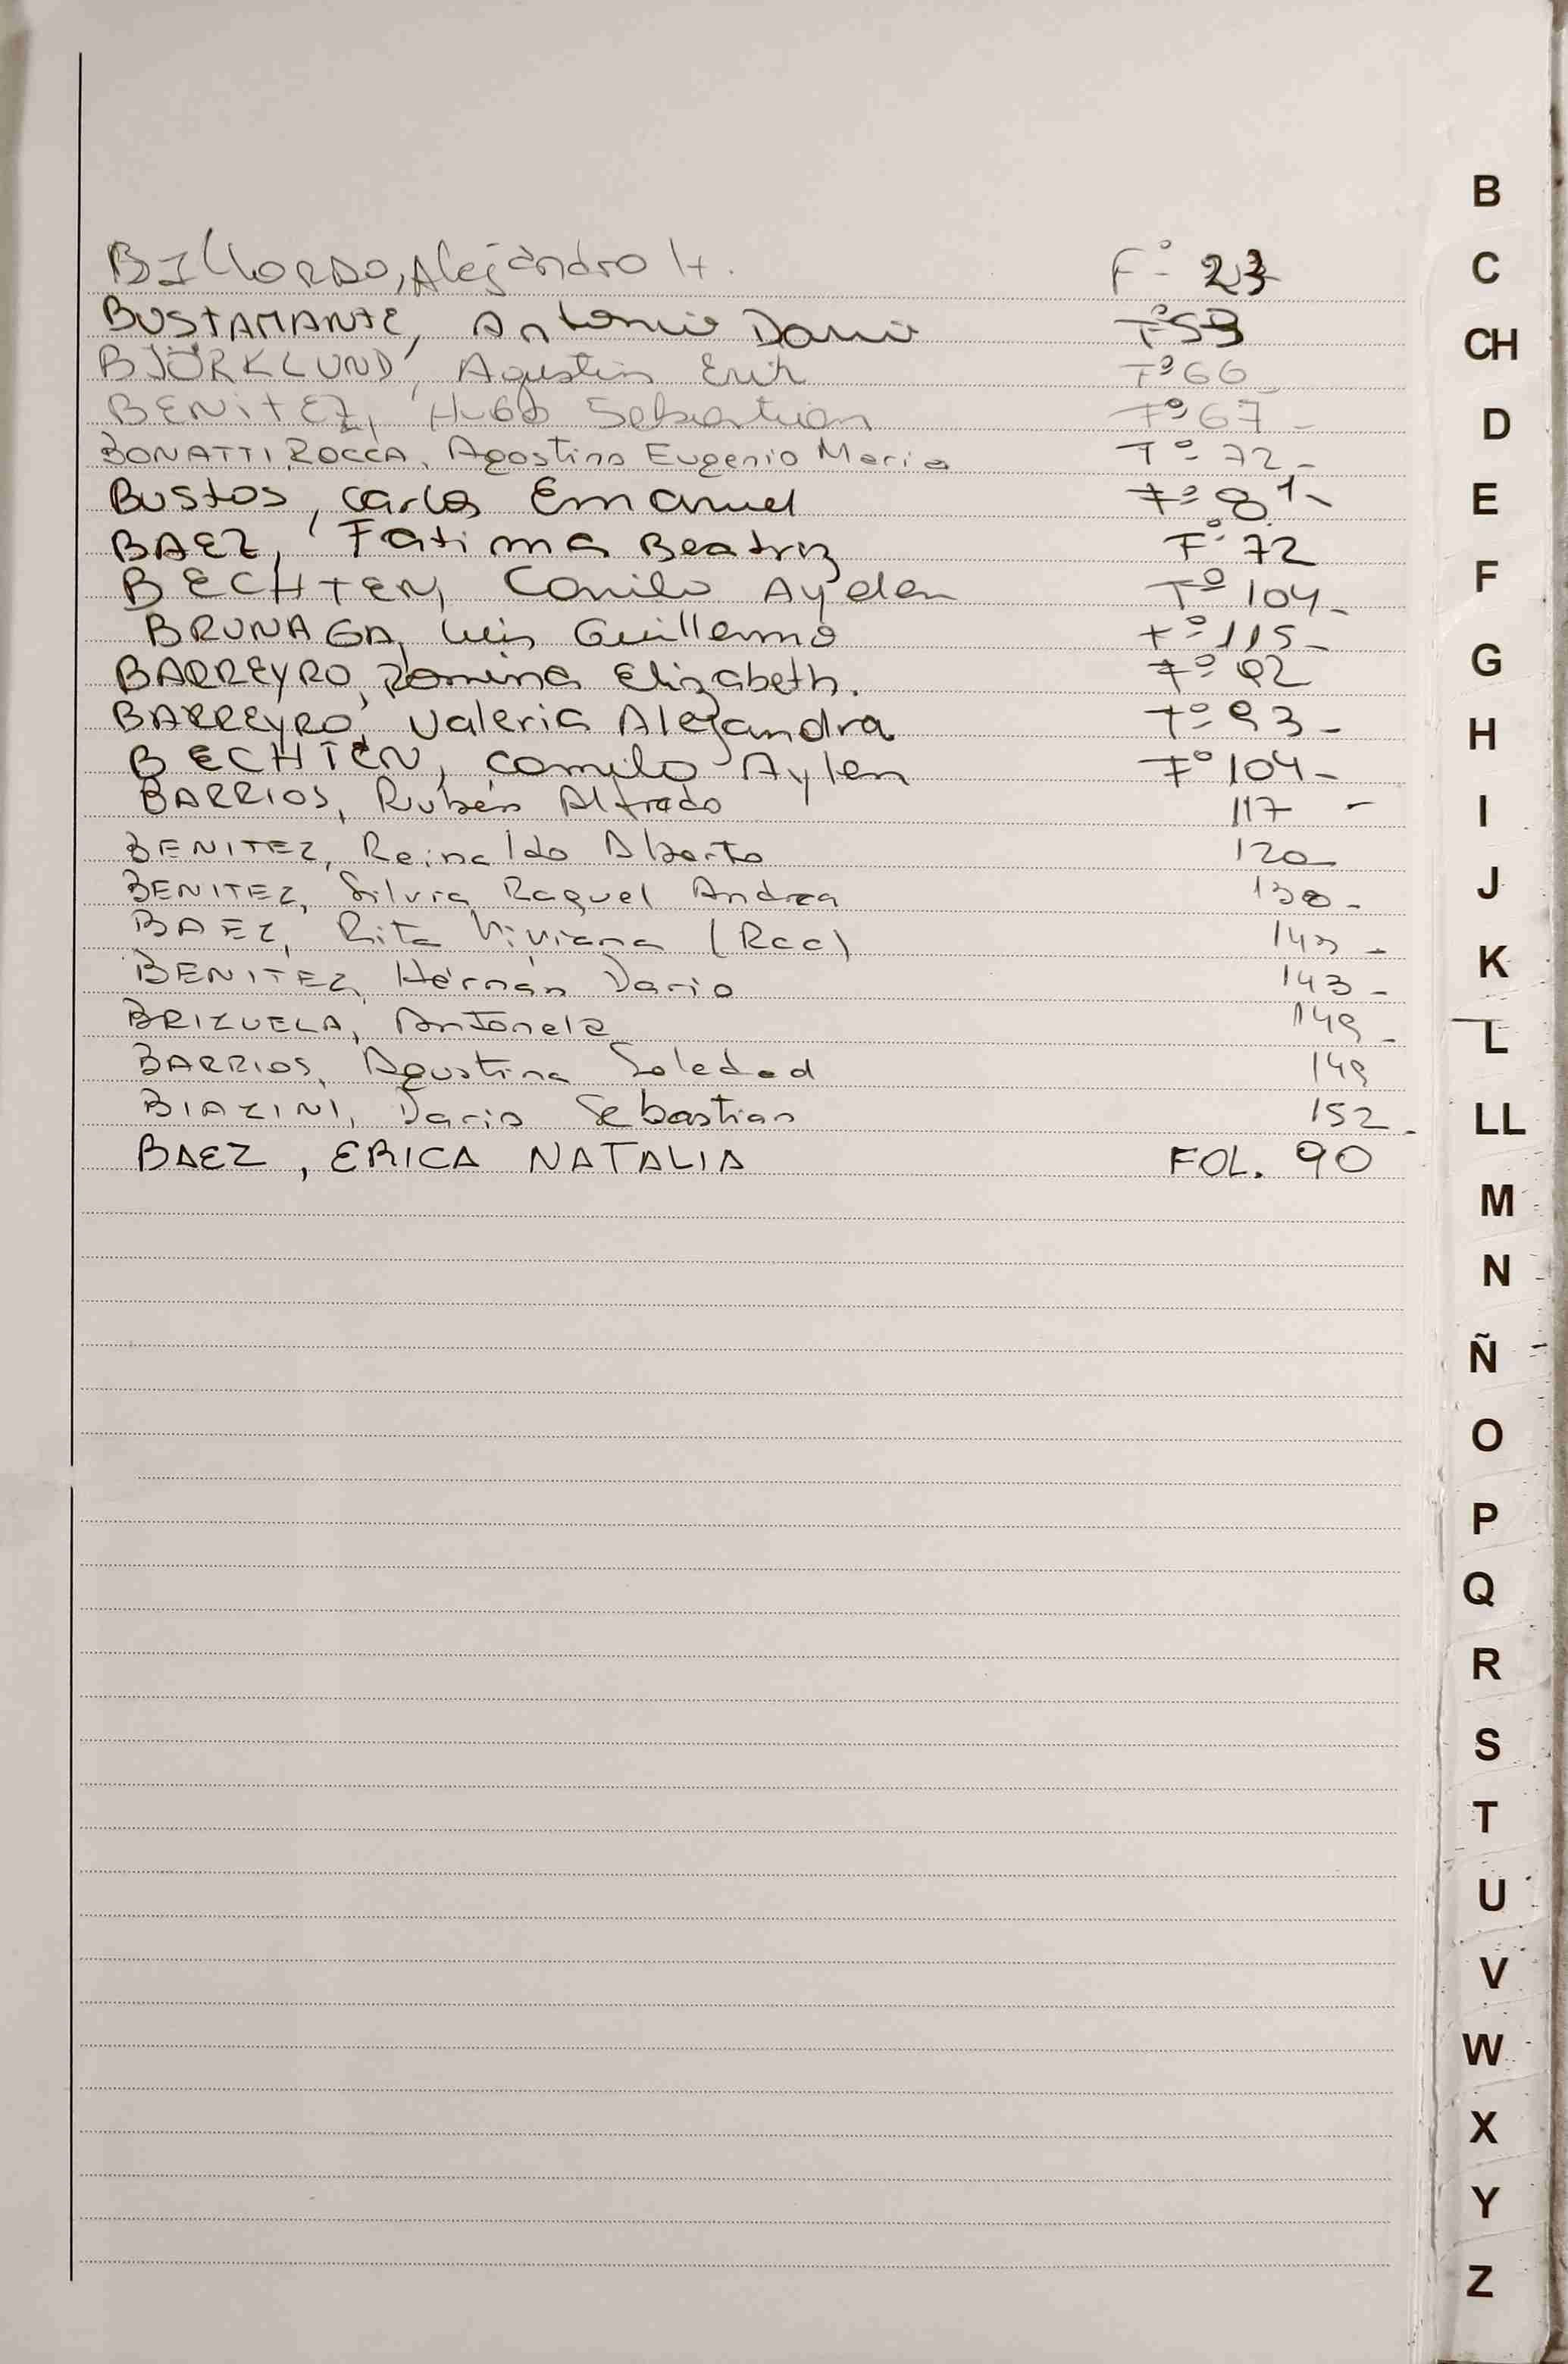 BILLORDO, Alejandro H. F° 23
BUSTAMANTE, Antonio Dario F° 59
BJÖRKLUND, Agustin Erik F° 66
BENITEZ, Hugo Sebastian F° 67-
BONATTI ROCCA, Agostino Eugenio Maria F° 72-
BUSTOS, Carlos Emanuel F° 81-
BAEZ, Fatima Beatriz F° 72
BECHTEN, Camilo Ayelen F° 104-
BRUNAGA, Luis Guillermo F° 115-
BARREYRO, Romina Elizabeth. F° 92
BARREYRO, Valeria Alejandra F° 93-
BECHTEN, Camilo Aylen F° 104-
BARRIOS, Rubén Alfredo 117 -
BENITEZ, Reinaldo Alberto 120
BENITEZ, Silvia Raquel Andrea 138-
BAEZ, Rita Viviana (Rec) 143-
BENITEZ, Hernán Dario 143-
BRIZUELA, Antonela 149-
BARRIOS, Agustina Soledad 149
BIAZINI, Dario Sebastian 152-
BAEZ, ERICA NATALIA FOL. 90
B
C
CH
D
E
F
G
H
I
J
K
L
LL
M
N
Ñ
O
P
Q
R
S
T
U
V
W
X
Y
Z